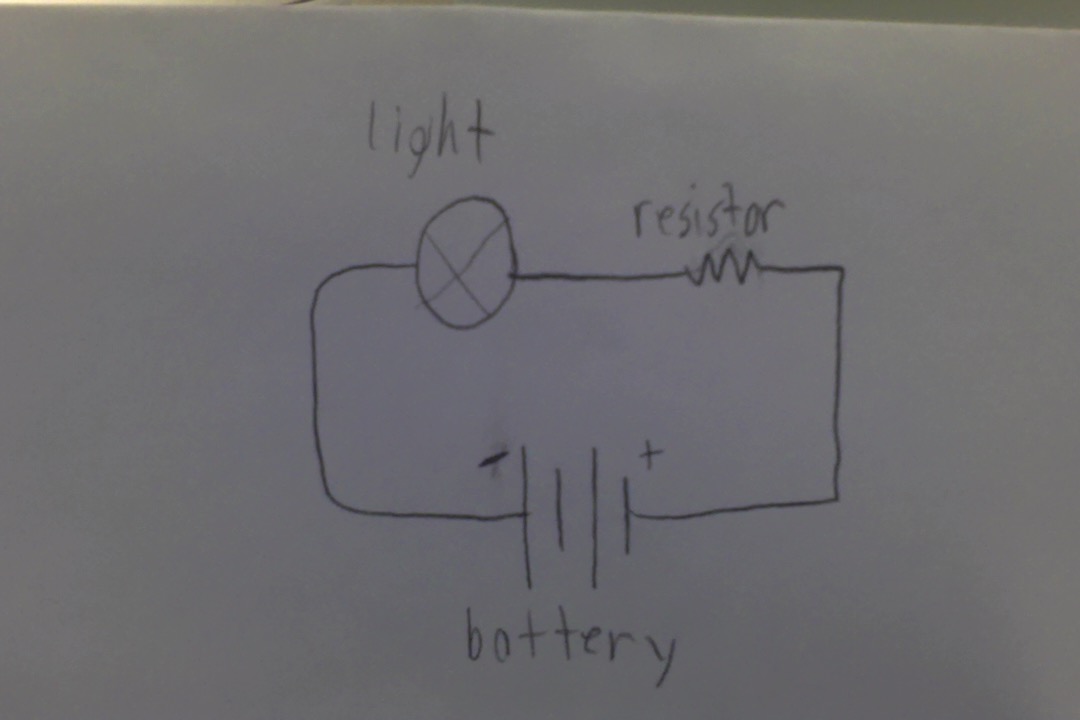 light
resistor
- +
battery